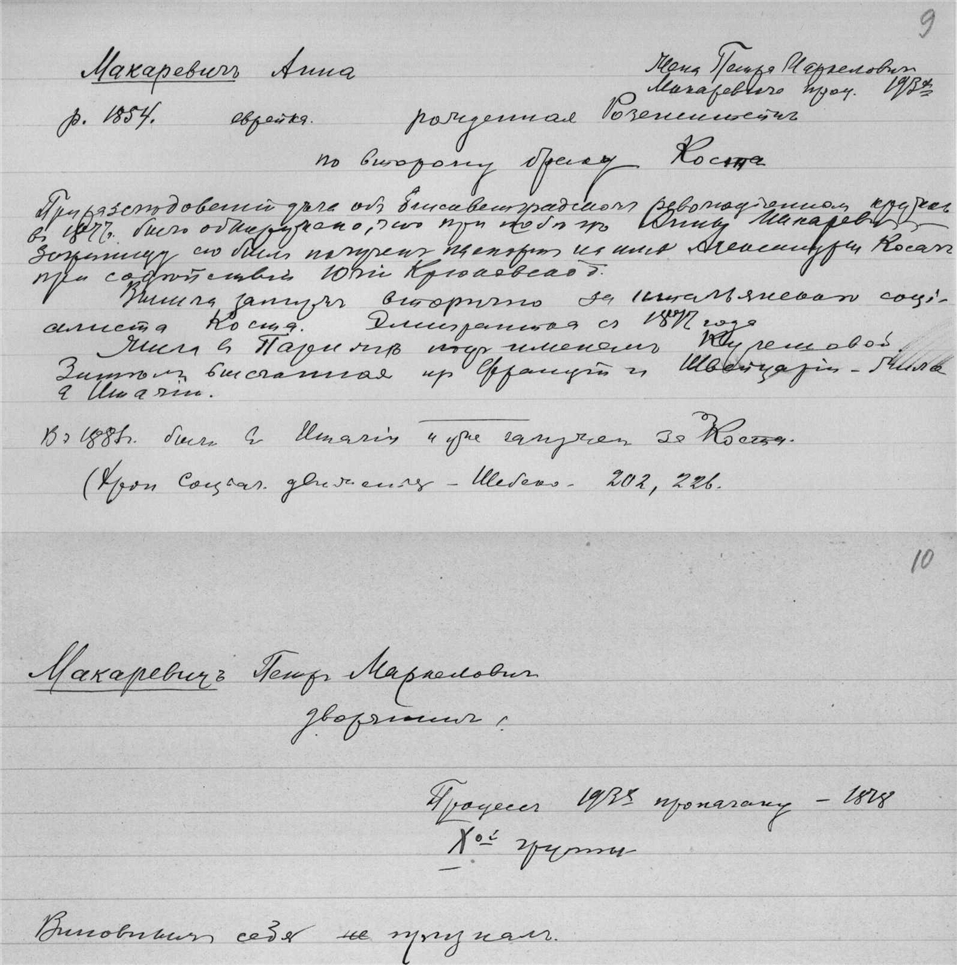 9
Макаревичъ Анна
Жена Петра Маркеловича
Макаревича проц. 193х
р. 1854. еврейка. рожденная Розенштейнъ
по второму браку Коста
При разследованіи дела объ Елисаветградскомъ революціонномъ кружке
въ 1877г. было обнаружено, что при побеге Анны Макаревичъ
заграницу ею былъ полученъ паспортъ на имя Александры Косачъ
при содействіи Юліи Крюковской.
Вышла замужъ вторично за итальянскаго соці-
алиста Коста. Эмигрантка съ 1877 года
Жила въ Париже подъ именемъ Кулешовой.
Затемъ высланная из Франціи и Швейцаріи - жила
въ Италіи.
Въ 188 г. была въ Италіи и уже замужем за Коста.
(Хрон соціал. движенія - Шебеко - 202, 226.
10
Макаревичъ Петръ Маркеловичъ
дворянинъ.
Процессъ 193хъ пропаганд - 1878
Xой группы
Виновнымъ себя не призналъ.